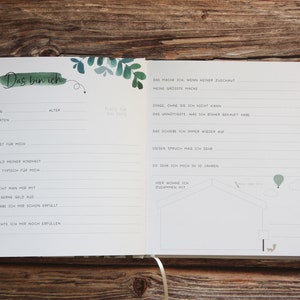 Das bin ich
ALTER
FÜR MICH
MEINER KINDHEIT
TYPISCH FÜR MICH
MAN MIR MIT
GERNE AUF
ICH MIR SCHON ERFÜLLT
ICH MIR NOCH ERFÜLLEN
DAS MACHE ICH, WENN KEINER ZUSCHAUT
MEINE GRÖSSTE MACKE
DINGE, OHNE DIE ICH NICHT KANN
DAS UNNÖTIGSTE, WAS ICH BISHER GEKAUFT HABE
DAS SCHIEBE ICH IMMER WIEDER AUF
DIESEN SPRUCH MAG ICH SEHR
SO SEHE ICH MICH IN 10 JAHREN
HIER WOHNE ICH
ZUSAMMEN MIT